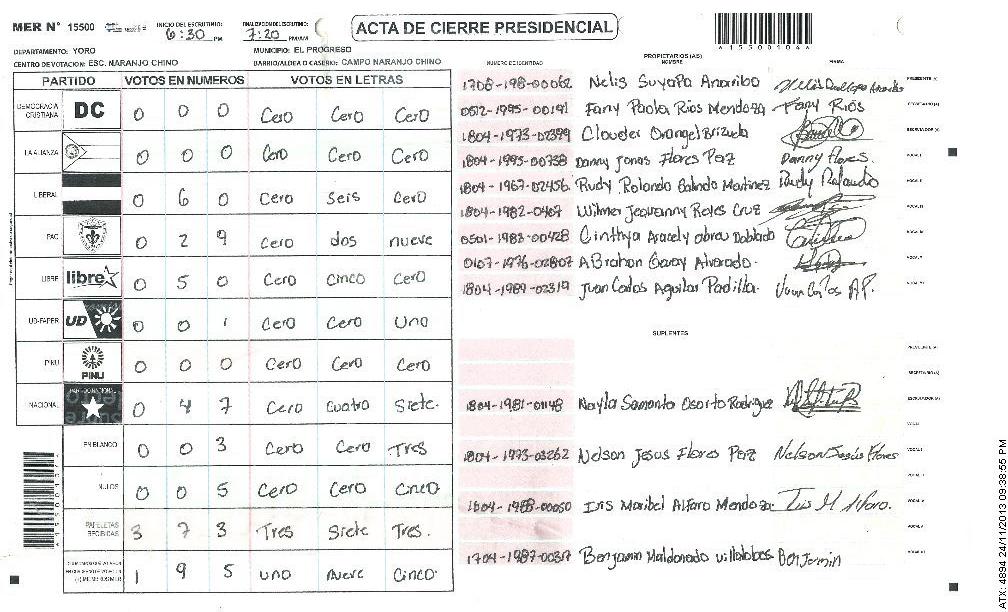 MER N° 15500 INICIO DEL ESCRUTINIO: 6:30 PM FINALIZACION DEL ESCRUTINIO: 7:20 PM/AM ACTA DE CIERRE PRESIDENCIAL
DEPARTAMENTO: YORO MUNICIPIO: EL PROGRESO
CENTRO DE VOTACION: ESC. NARANJO CHINO BARRIO/ALDEA O CASERIO: CAMPO NARANJO CHINO
PARTIDO VOTOS EN NUMEROS VOTOS EN LETRAS
DEMOCRACIA CRISTIANA DC 0 0 0 Cero Cero Cero
LA ALIANZA 0 0 0 Cero Cero Cero
LIBERAL 0 6 0 Cero Seis Cero
PAC 0 2 9 Cero dos nueve
LIBRE libre 0 5 0 Cero Cinco Cero
UD-FAPER UD 0 0 1 Cero Cero Uno
PINU PINU 0 0 0 Cero Cero Cero
NACIONAL PARTIDO NACIONAL 0 4 7 Cero Cuatro Siete.
EN BLANCO 0 0 3 Cero Cero Tres
NULOS 0 0 5 Cero Cero Cinco
PAPELETAS RECIBIDAS 3 7 3 Tres Siete Tres.
1 9 5 uno nueve Cinco.
PROPIETARIOS (AS)
NUMERO DE IDENTIDAD NOMBRE FIRMA
Nelis Suyapa PRESIDENTE (A)
0512-1995-00191 Fany Paola Rios Mendoza Fany Rios SECRETARIO (A)
1804-1973-02399 Orangel Brizuela ESCRUTADOR (A)
1804-1995-00738 Danny Jonas Flores Paz Danny Flores. VOCAL I
1804-1967-02456 Rudy Rolando Galindo Martinez Rudy Rolando
Wilmer Jeovanny Reyes Cruz
0501-1983-00428 Cinthya Aracely
Abrahan Alvarado.
1804-1989-02319 Juan Carlos Aguilar Padilla. Juan Carlos A.P.
SUPLENTES
PRESIDENTE (A)
SECRETARIO (A)
1804-1981-01148 Nayla Samanta Osorto Rodriguez ESCRUTADOR (A)
1804-1973-03262 Nelson Jesus Flores Paz Nelson Jesús Flores
Iris Maribel Alfaro Mendoza. Iris M Alfaro.
Benjamin Maldonado Villalobos Benjamin
A15500104A
ATX: 4894 24/11/2013 09:38:55 PM